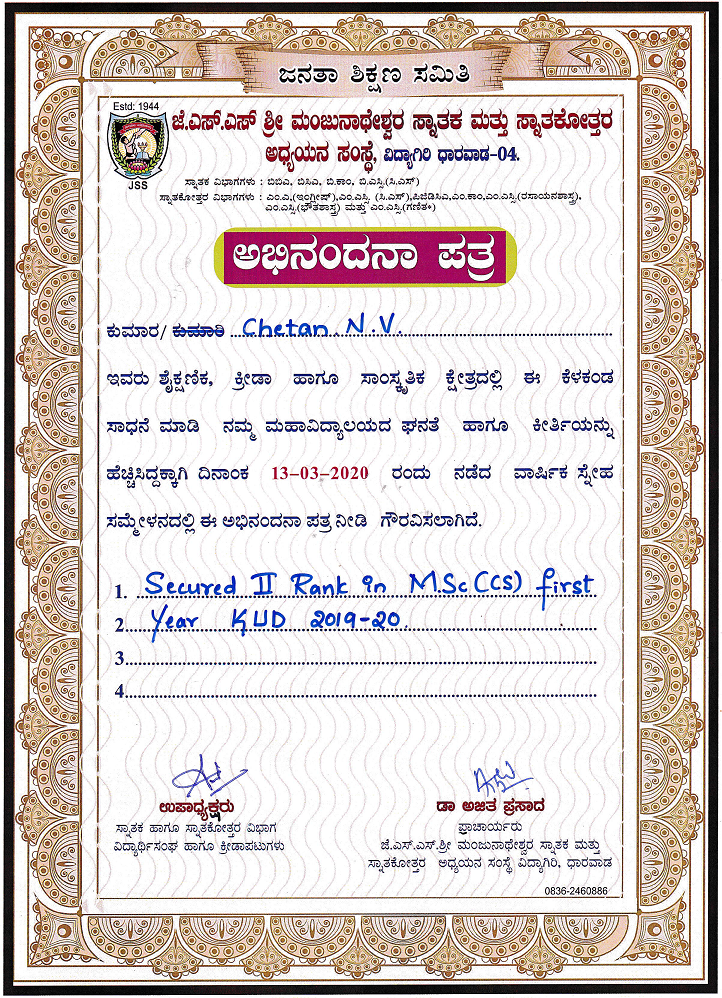 ಜನತಾ ಶಿಕ್ಷಣ ಸಮಿತಿ
Estd: 1944
JSS
ಜೆ.ಎಸ್.ಎಸ್ ಶ್ರೀ ಮಂಜುನಾಥೇಶ್ವರ ಸ್ನಾತಕ ಮತ್ತು ಸ್ನಾತಕೋತ್ತರ
ಅಧ್ಯಯನ ಸಂಸ್ಥೆ, ವಿದ್ಯಾಗಿರಿ ಧಾರವಾಡ-04.
ಸ್ನಾತಕ ವಿಭಾಗಗಳು : ಬಿಬಿಎ, ಬಿಸಿಎ, ಬಿ.ಕಾಂ, ಬಿ.ಎಸ್ಸಿ.(ಸಿ.ಎಸ್)
ಸ್ನಾತಕೋತ್ತರ ವಿಭಾಗಗಳು : ಎಂ.ಎ.(ಇಂಗ್ಲೀಷ್),ಎಂ.ಎಸ್ಸಿ. (ಸಿ.ಎಸ್),ಪಿಜಿಡಿಸಿಎ,ಎಂ.ಕಾಂ,ಎಂ.ಎಸ್ಸಿ.(ರಸಾಯನಶಾಸ್ತ್ರ),
ಎಂ.ಎಸ್ಸಿ.(ಭೌತಶಾಸ್ತ್ರ) ಮತ್ತು ಎಂ.ಎಸ್ಸಿ.(ಗಣಿತ*)
ಅಭಿನಂದನಾ ಪತ್ರ
ಕುಮಾರ/ ಕುಮಾರಿ Chetan. N.V.
ಇವರು ಶೈಕ್ಷಣಿಕ, ಕ್ರೀಡಾ ಹಾಗೂ ಸಾಂಸ್ಕೃತಿಕ ಕ್ಷೇತ್ರದಲ್ಲಿ ಈ ಕೆಳಕಂಡ
ಸಾಧನೆ ಮಾಡಿ ನಮ್ಮ ಮಹಾವಿದ್ಯಾಲಯದ ಘನತೆ ಹಾಗೂ ಕೀರ್ತಿಯನ್ನು
ಹೆಚ್ಚಿಸಿದ್ದಕ್ಕಾಗಿ ದಿನಾಂಕ 13-03-2020 ರಂದು ನಡೆದ ವಾರ್ಷಿಕ ಸ್ನೇಹ
ಸಮ್ಮೇಳನದಲ್ಲಿ ಈ ಅಭಿನಂದನಾ ಪತ್ರ ನೀಡಿ ಗೌರವಿಸಲಾಗಿದೆ.
1. Secured II Rank in M.Sc (CS) first
2. Year KUD 2019-20.
3
4
ಉಪಾಧ್ಯಕ್ಷರು
ಸ್ನಾತಕ ಹಾಗೂ ಸ್ನಾತಕೋತ್ತರ ವಿಭಾಗ
ವಿದ್ಯಾರ್ಥಿಸಂಘ ಹಾಗೂ ಕ್ರೀಡಾಪಟುಗಳು
ಡಾ ಅಜಿತ ಪ್ರಸಾದ
ಪ್ರಾಚಾರ್ಯರು
ಜೆ.ಎಸ್.ಎಸ್.ಶ್ರೀ ಮಂಜುನಾಥೇಶ್ವರ ಸ್ನಾತಕ ಮತ್ತು
ಸ್ನಾತಕೋತ್ತರ ಅಧ್ಯಯನ ಸಂಸ್ಥೆ ವಿದ್ಯಾಗಿರಿ, ಧಾರವಾಡ
0836-2460886